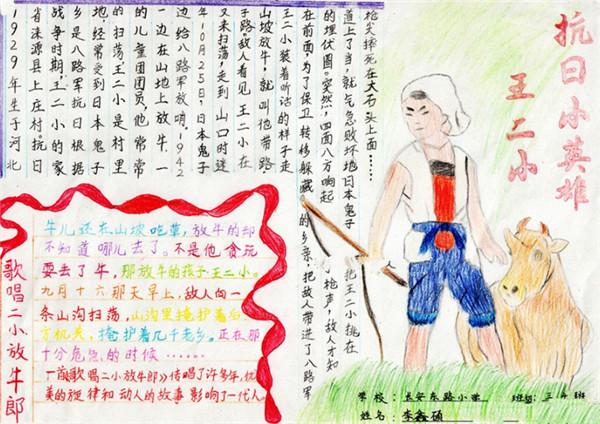 抗日小英雄
王二小
1929年生于河北
省涞源县上庄村。抗日
战争时期,王二小的家
乡是八路军抗日根据
地,经常受到日本鬼子
的扫荡,王二小是村里
的儿童团团员,他常常
一边在山地上放牛,一
边给八路军放哨。1942
年10月25日,日本鬼子
又来扫荡,走到山口时迷
了路。敌人看见王二小在
山坡放牛,就叫他带路。
王二小装着听话的样子走
在前面,为了保卫转移躲藏的乡亲,把敌人带进了八路军
的埋伏圈。突然,四面八方响起了枪声,敌人才知
道上了当,就气急败坏地日本鬼子把王二小挑在
枪尖摔死在大石头上面……
歌唱二小放牛郎
牛儿还在山坡吃草,放牛的却
不知道哪儿去了。不是他贪玩
耍丢了牛,那放牛的孩子王二小。
九月十六那天早上,敌人向一
条山沟扫荡,山沟里掩护着后
方机关,掩护着几千老乡。正在那
十分危急的时候……
一首《歌唱二小放牛郎》传唱了许多年,优
美的旋律和动人的故事影响了一代人。
学校:长安东路小学 班级:三年班
姓名:李鑫硕